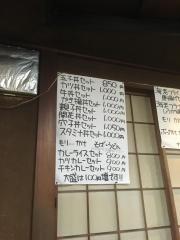 玉子丼セット 850円
カツ丼セット 1,000円
牛丼セット 1,000円
カキ揚丼セット 1,000円
親子丼セット 1,000円
開花丼セット 1,000円
穴子丼セット 1,050円
スタミナ丼セット 1,000円
モリ・かけ そば・うどん
カレーライスセット 800円
カツカレーセット 900円
チキンカレーセット 900円
大盛は100円増です
モリ